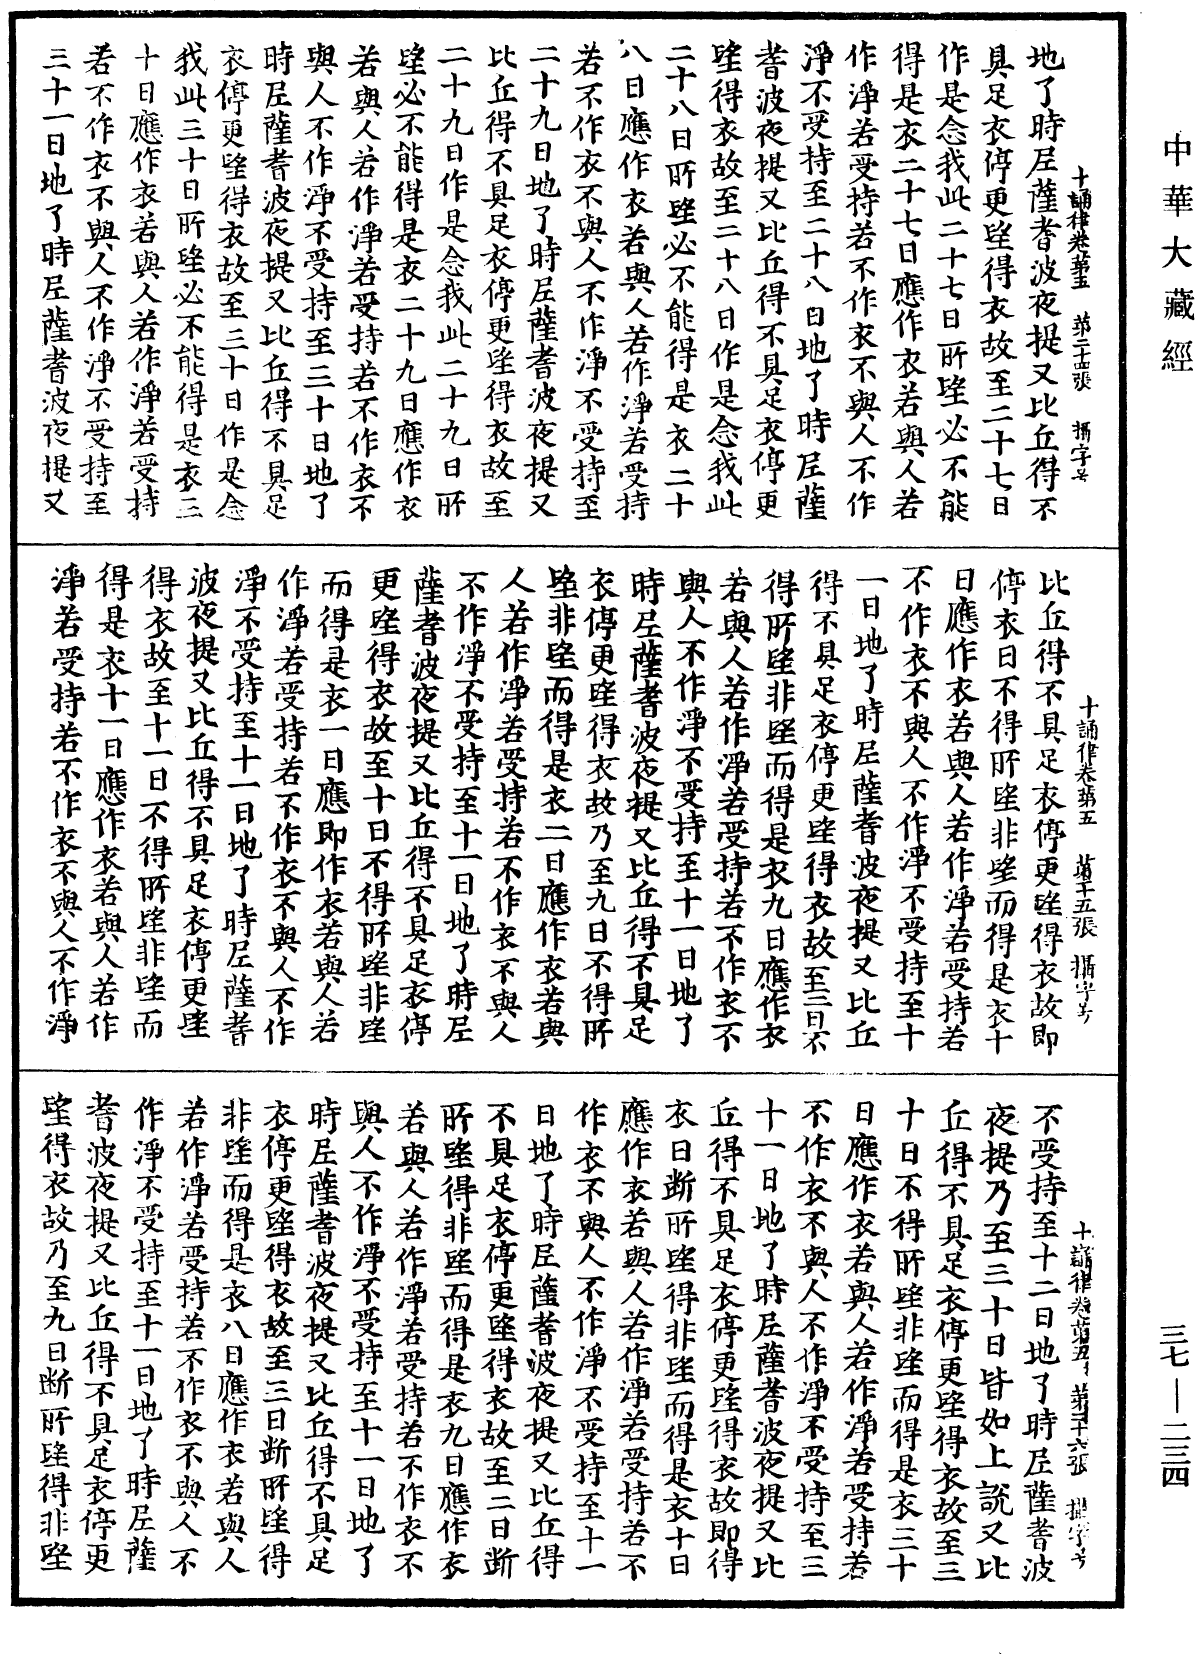 中華大藏經
十誦律卷第五 第二十四張 攝字号
地了時尼薩耆波夜提又比丘得不
具足衣停更望得衣故至二十七日
作是念我此二十七日所望必不能
得是衣二十七日應作衣若與人若
作淨若受持若不作衣不與人不作
淨不受持至二十八日地了時尼薩
耆波夜提又比丘得不具足衣停更
望得衣故至二十八日作是念我此
二十八日所望必不能得是衣二十
八日應作衣若與人若作淨若受持
若不作衣不與人不作淨不受持至
二十九日地了時尼薩耆波夜提又
比丘得不具足衣停更望得衣故至
二十九日作是念我此二十九日所
望必不能得是衣二十九日應作衣
若與人若作淨若受持若不作衣不
與人不作淨不受持至三十日地了
時尼薩耆波夜提又比丘得不具足
衣停更望得衣故至三十日作是念
我此三十日所望必不能得是衣三
十日應作衣若與人若作淨若受持
若不作衣不與人不作淨不受持至
三十一日地了時尼薩耆波夜提又
十誦律卷第五 第二十五張 攝字号
比丘得不具足衣停更望得衣故即
停衣日不得所望非望而得是衣十
日應作衣若與人若作淨若受持若
不作衣不與人不作淨不受持至十
一日地了時尼薩耆波夜提又比丘
得不具足衣停更望得衣故至二日不
得所望非望而得是衣九日應作衣
若與人若作淨若受持若不作衣不
與人不作淨不受持至十一日地了
時尼薩耆波夜提又比丘得不具足
衣停更望得衣故乃至九日不得所
望非望而得是衣二日應作衣若與
人若作淨若受持若不作衣不與人
不作淨不受持至十一日地了時尼
薩耆波夜提又比丘得不具足衣停
更望得衣故至十日不得所望非望
而得是衣一日應即作衣若與人若
作淨若受持若不作衣不與人不作
淨不受持至十一日地了時尼薩耆
波夜提又比丘得不具足衣停更望
得衣故至十一日不得所望非望而
得是衣十一日應作衣若與人若作
淨若受持若不作衣不與人不作淨
十誦律卷第五 第二十六張 攝字号
不受持至十二日地了時尼薩耆波
夜提乃至三十日皆如上說又比
丘得不具足衣停更望得衣故至三
十日不得所望非望而得是衣三十
日應作衣若與人若作淨若受持若
不作衣不與人不作淨不受持至三
十一日地了時尼薩耆波夜提又比
丘得不具足衣停更望得衣故即得
衣日斷所望得非望而得是衣十日
應作衣若與人若作淨若受持若不
作衣不與人不作淨不受持至十一
日地了時尼薩耆波夜提又比丘得
不具足衣停更望得衣故至二日斷
所望得非望而得是衣九日應作衣
若與人若作淨若受持若不作衣不
與人不作淨不受持至十一日地了
時尼薩耆波夜提又比丘得不具足
衣停更望得衣故至三日斷所望得
非望而得是衣八日應作衣若與人
若作淨若受持若不作衣不與人不
作淨不受持至十一日地了時尼薩
耆波夜提又比丘得不具足衣停更
望得衣故乃至九日斷所望得非望
三七—二三四